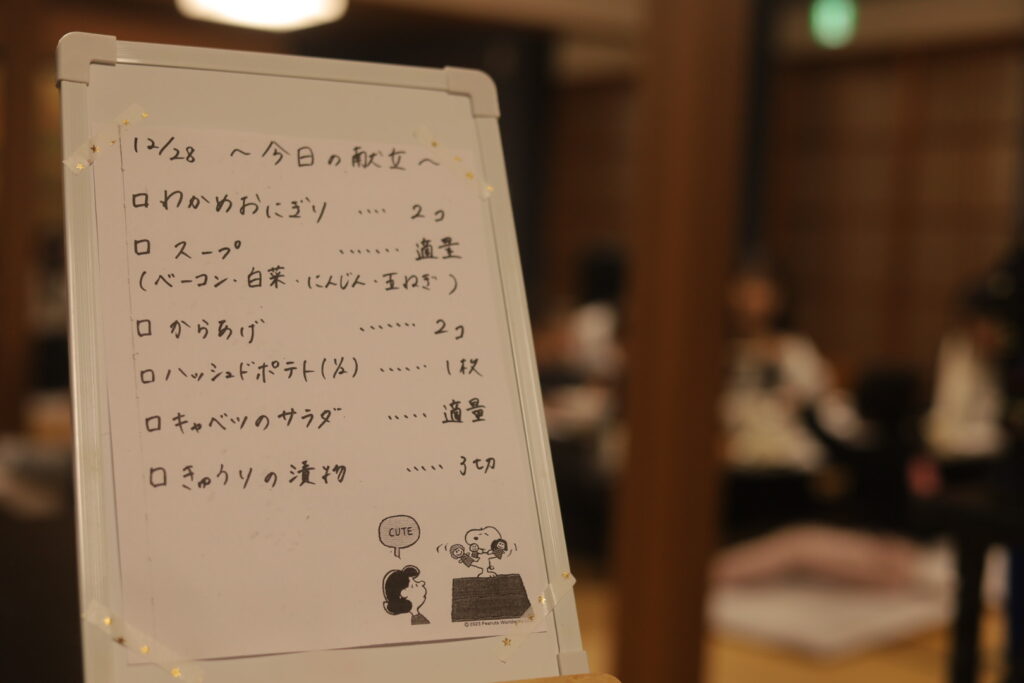 12/28 〜今日の献立〜
□ わかめおにぎり ‥‥ 2コ
□ スープ ‥‥‥‥ 適量
(ベーコン・白菜・にんじん・玉ねぎ)
□ からあげ ‥‥‥‥ 2コ
□ ハッシュドポテト(1/2) ‥‥‥ 1枚
□ キャベツのサラダ ‥‥‥ 適量
□ きゅうりの漬物 ‥‥‥ 3切
CUTE
© 2023 Peanuts Worldwide